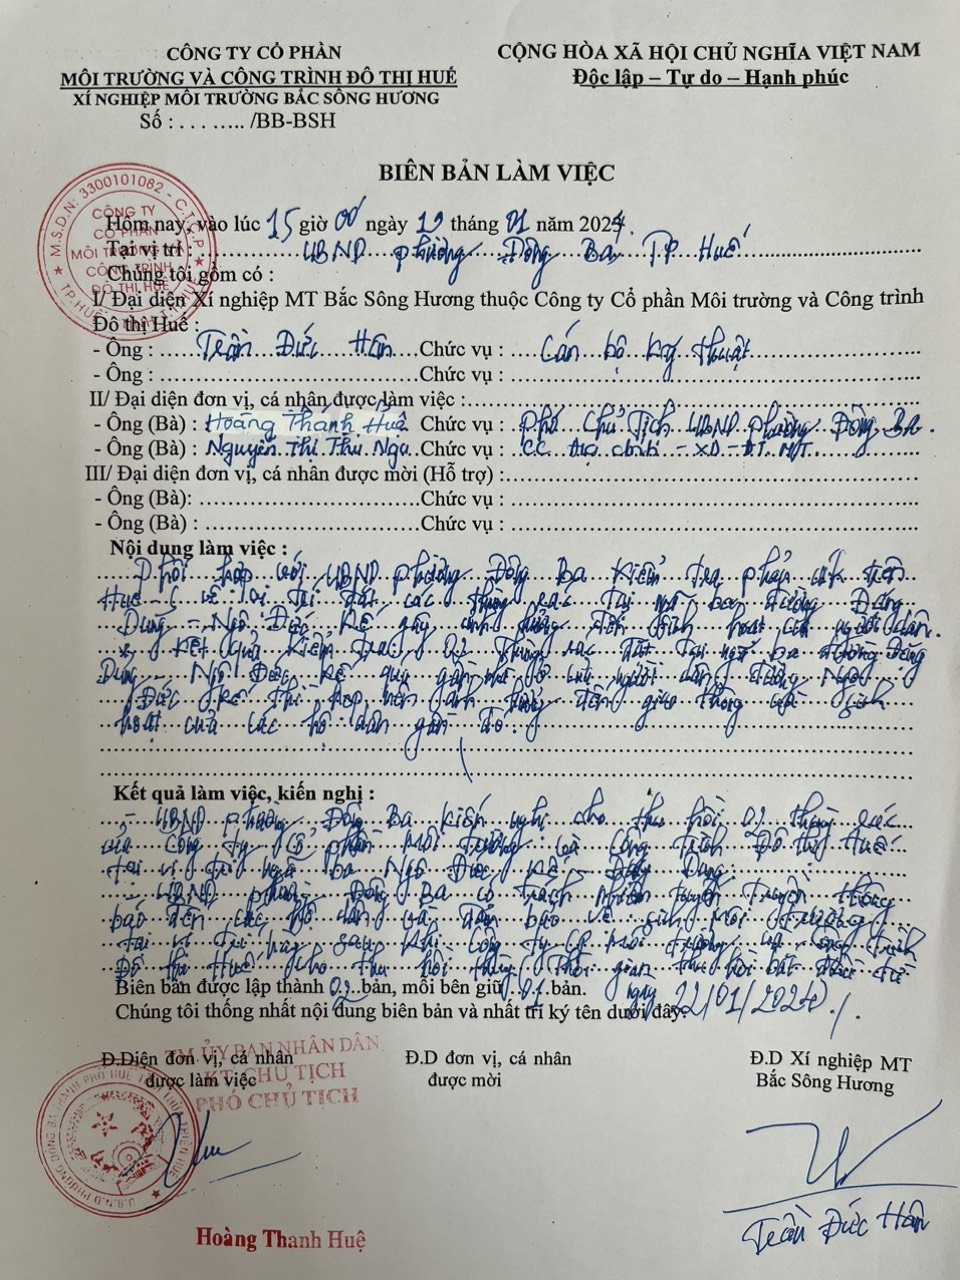 CÔNG TY CỔ PHẦN
MÔI TRƯỜNG VÀ CÔNG TRÌNH ĐÔ THỊ HUẾ
XÍ NGHIỆP MÔI TRƯỜNG BẮC SÔNG HƯƠNG
Số : . . . ..... /BB-BSH
CỘNG HÒA XÃ HỘI CHỦ NGHĨA VIỆT NAM
Độc lập – Tự do – Hạnh phúc
BIÊN BẢN LÀM VIỆC
M.S.D.N: 3300101082 - C.T.C.P
CÔNG TY
CỔ PHẦN
MÔI TRƯỜNG VÀ
CÔNG TRÌNH
ĐÔ THỊ HUẾ
Hôm nay, vào lúc 15 giờ 00 ngày 19 tháng 01 năm 2024.
Tại vị trí : UBND phường Đông Ba, TP Huế
Chúng tôi gồm có :
I/ Đại diện Xí nghiệp MT Bắc Sông Hương thuộc Công ty Cổ phần Môi trường và Công trình
Đô thị Huế :
- Ông : Trần Đức Hân Chức vụ : Cán bộ Kỹ thuật
- Ông : Chức vụ :
II/ Đại diện đơn vị, cá nhân được làm việc :
- Ông (Bà) : Hoàng Thanh Huệ Chức vụ : Phó Chủ Tịch UBND phường Đông Ba.
- Ông (Bà) : Nguyễn Thị Thu Nga Chức vụ : CC - XD - ĐT. MT.
III/ Đại diện đơn vị, cá nhân được mời (Hỗ trợ) :
- Ông (Bà): Chức vụ :
- Ông (Bà) : Chức vụ :
Nội dung làm việc :
Phối hợp với UBND phường Đông Ba kiểm tra phản trên
Hue-S về vị trí đặt các thùng rác tại ngã ba đường Đặng
Dung - Ngô Đức Kế gây ảnh hưởng đến sinh hoạt của người dân.
* Kết quả kiểm tra: 02 thùng rác đặt tại ngã ba đường Đặng
Dung - Ngô Đức Kế quá gần nhà ở của người dân, đường Ngô
Đức Kế thì hẹp nên ảnh hưởng đến giao thông và sinh
hoạt của các hộ dân gần đó.
Kết quả làm việc, kiến nghị :
- UBND phường Đông Ba kiến nghị cho thu hồi 02 thùng rác
của Công ty Cổ phần Môi trường và Công trình Đô thị Huế
tại vị trí ngã ba Ngô Đức Kế - Đặng Dung.
- UBND phường Đông Ba có trách nhiệm tuyên truyền thông
báo đến các hộ dân và đảm bảo vệ sinh môi trường
tại vị trí này sau khi Công ty CP Môi trường và Công trình
Đô thị Huế cho thu hồi thùng (Thời gian thu hồi bắt đầu từ
Biên bản được lập thành 02 bản, mỗi bên giữ 01 bản. ngày 22/01/2024)
Chúng tôi thống nhất nội dung biên bản và nhất trí ký tên dưới đây.
Đ.Diện đơn vị, cá nhân
được làm việc
Đ.D đơn vị, cá nhân
được mời
Đ.D Xí nghiệp MT
Bắc Sông Hương
TM.ỦY BAN NHÂN DÂN
KT. CHỦ TỊCH
PHÓ CHỦ TỊCH
U.B.N.D PHƯỜNG ĐÔNG BA THÀNH PHỐ HUẾ TỈNH THỪA THIÊN HUẾ
Hoàng Thanh Huệ
Trần Đức Hân